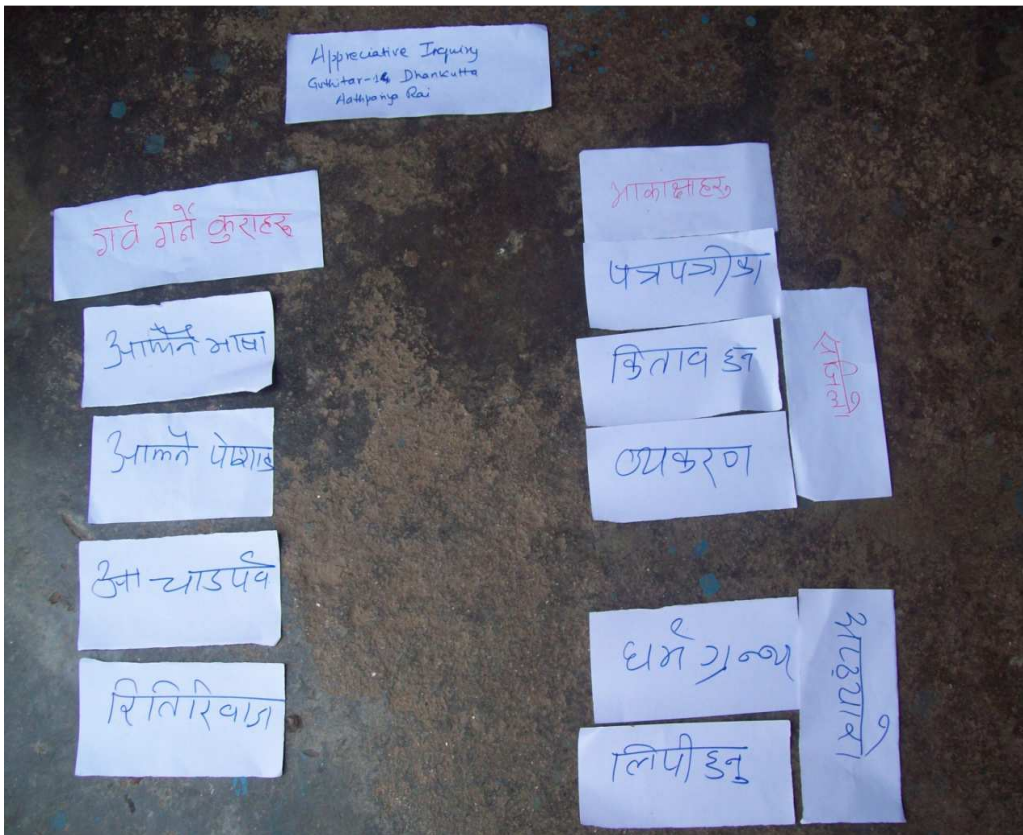 Appreciative Inquiry
Guthitar-14 Dhankutta
Aathpariya Rai
गर्व गर्ने कुराहरु
आफ्नै भाषा
आफ्नै पोशाक
आ चाडपर्व
रितिरिवाज
आकांक्षाहरु
पत्रपत्रीका
किताव हुन
व्यकरण
सजिलो
धर्म ग्रन्थ
लिपी हुनु
अप्ठ्यारो